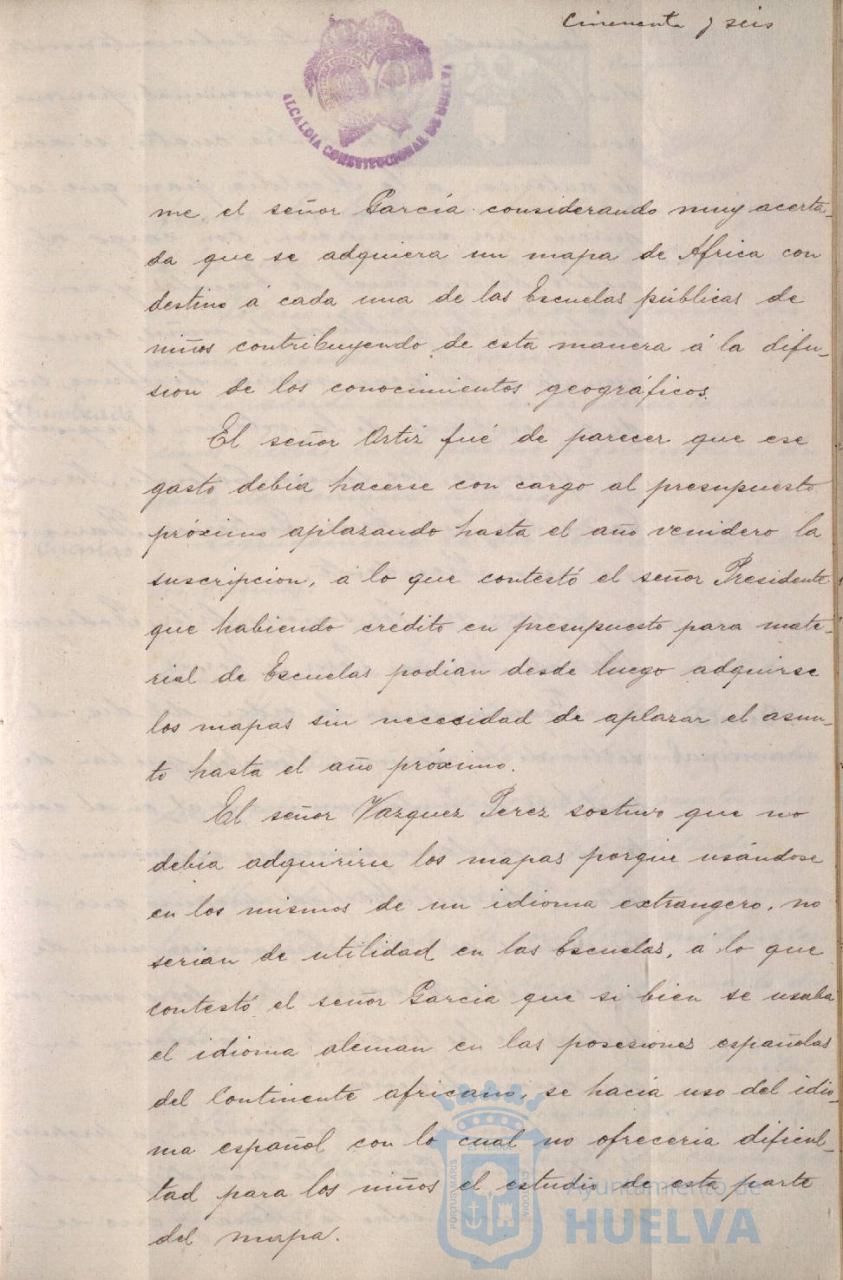 Cincuenta y seis
ALCALDIA CONSTITUCIONAL DE HUELVA
me, el señor García considerando muy acerta-
da que se adquiera un mapa de Africa con
destino á cada una de las Escuelas públicas de
niños contribuyendo de esta manera á la difu-
sion de los conocimientos geográficos.
El señor Ortiz fué de parecer que ese
gasto debia hacerse con cargo al presupuesto
próximo aplazando hasta el año venidero la
suscripcion, á lo que contestó el señor Presidente
que habiendo crédito en presupuesto para mate-
rial de Escuelas podian desde luego adquirse
los mapas sin necesidad de aplazar el asun-
to hasta el año próximo.
El señor Vazquez Perez sostuvo que no
debia adquirirse los mapas porque usándose
en los mismos de un idioma extrangero, no
serian de utilidad en las Escuelas, á lo que
contestó el señor Garcia que si bien se usaba
el idioma aleman en las posesiones españolas
del Continente africano, se hacia uso del idio-
ma español con lo cual no ofreceria dificul-
tad para los niños el estudio de esta parte
del mapa.
PORTUS MARIS
ET TERRAE
CUSTODIA
Ayuntamiento de
HUELVA